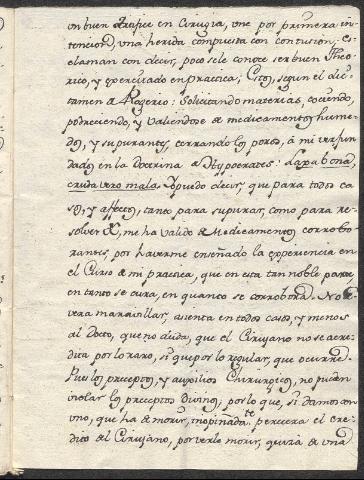 un buen Artifice en Cirugia, une por primera in-
tencion, una herida compuesta con contusion, es-
claman con decir, poco se le conoce ser buen Theo-
rico, y exercitado en practica; Estos, segun el dic-
tamen de Rogerio: Solicitando materias, cociendo,
podreciendo, y valiendose de medicamentos hume-
dos, y supurantes, cerrando los poros, à mi ver fun-
dados en la doctrina de Hyppocrates: Laxa bona,
cruda vero mala. Yo puedo decir, que para todos ca-
sos, y affectos, tanto para supurar, como para re-
solver &, me ha valido de Medicamentos corrobo-
rantes, por haverme enseñado la experiencia en
el Curso de mi practica, que en esta tan noble parte
en tanto se cura, en quanto se corrobora. No
vera maravillas, asienta en todos casos, y menos
al Docto, que no duda, que el Cirujano no se acre-
dita por lo raro, si que por lo regular, que ocurre.
Pues los preceptos, y auxilios Chirurgicos, no pueden
violar los preceptos divinos, por lo que, si damos con
uno, que ha de morir, inopinadate perecera el cre-
dito del Cirujano, por verle morir, quizà de una